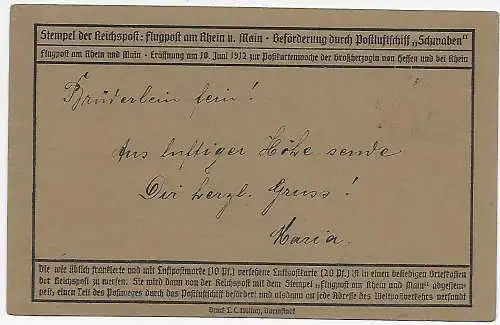 Stempel der Reichspost: Flugpost am Rhein u. Main - Beförderung durch Postluftschiff „Schwaben"
Flugpost am Rhein und Main - Eröffnung am 10. Juni 1912 zur Postkartenwoche der Großherzogin von Hessen und bei Rhein
Brüderlein fein!
Aus luftiger Höhe sende
Dir herzl. Gruss!
Maria.
Die wie üblich frankierte und mit Luftpostmarke (10 Pf.) versehene Luftpostkarte (20 Pf.) ist in einen beliebigen Briefkasten
der Reichspost zu werfen. Sie wird dann von der Reichspost mit dem Stempel „Flugpost am Rhein und Main" abgestem-
pelt, einen Teil des Postweges durch das Postluftschiff befördert und alsdann an jede Adresse des Weltpostverkehrs versandt
Druck L. C. Wittich, Darmstadt